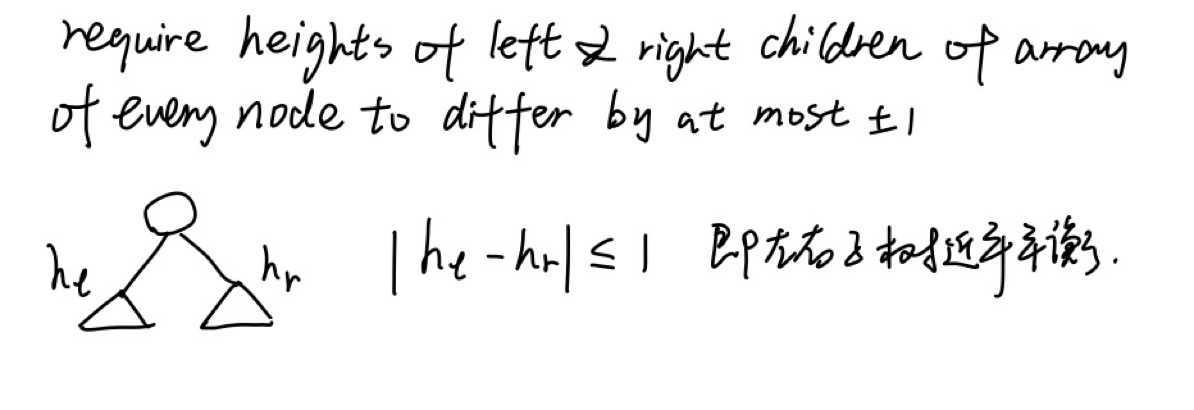 require heights of left & right children of array
of every node to differ by at most ±1
hℓ hr |hℓ - hr| ≤ 1 即左右子树近乎平衡.